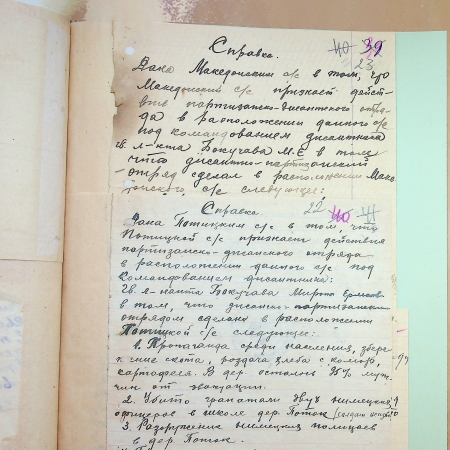 Справка.
40 39
23
Дано Македонским с/с в том, что
Македонский с/с признает дейст-
вие партизанско-десантского отря-
да в расположении данного с/с
под командованием десантного
гв. л-кта Бокучава М.Е в том
что десантно-партизанский
отряд сделал в расположении Маке-
донского с/с следующее:
Справка 22 40 41
Дана Потицким с/с в том, что
Потицкой с/с признает действия
партизанско-десанского отряда
в расположении данного с/с под
командованием десантника:
гв. л-нанта Бокучава
в том, что десанно-партизанским
отрядом сделано в расположении
Потицкой с/с следующее:
1. Пропаганда среди населения,
скота, роздача хлеба с комор,
картофеля. В дер. осталось 95% муж-
чин от эвакуации.
2. Убито гранатами двух немецких
офицеров в школе дер. Поток
3. Разоружение немецких полицаев
в дер. Поток.